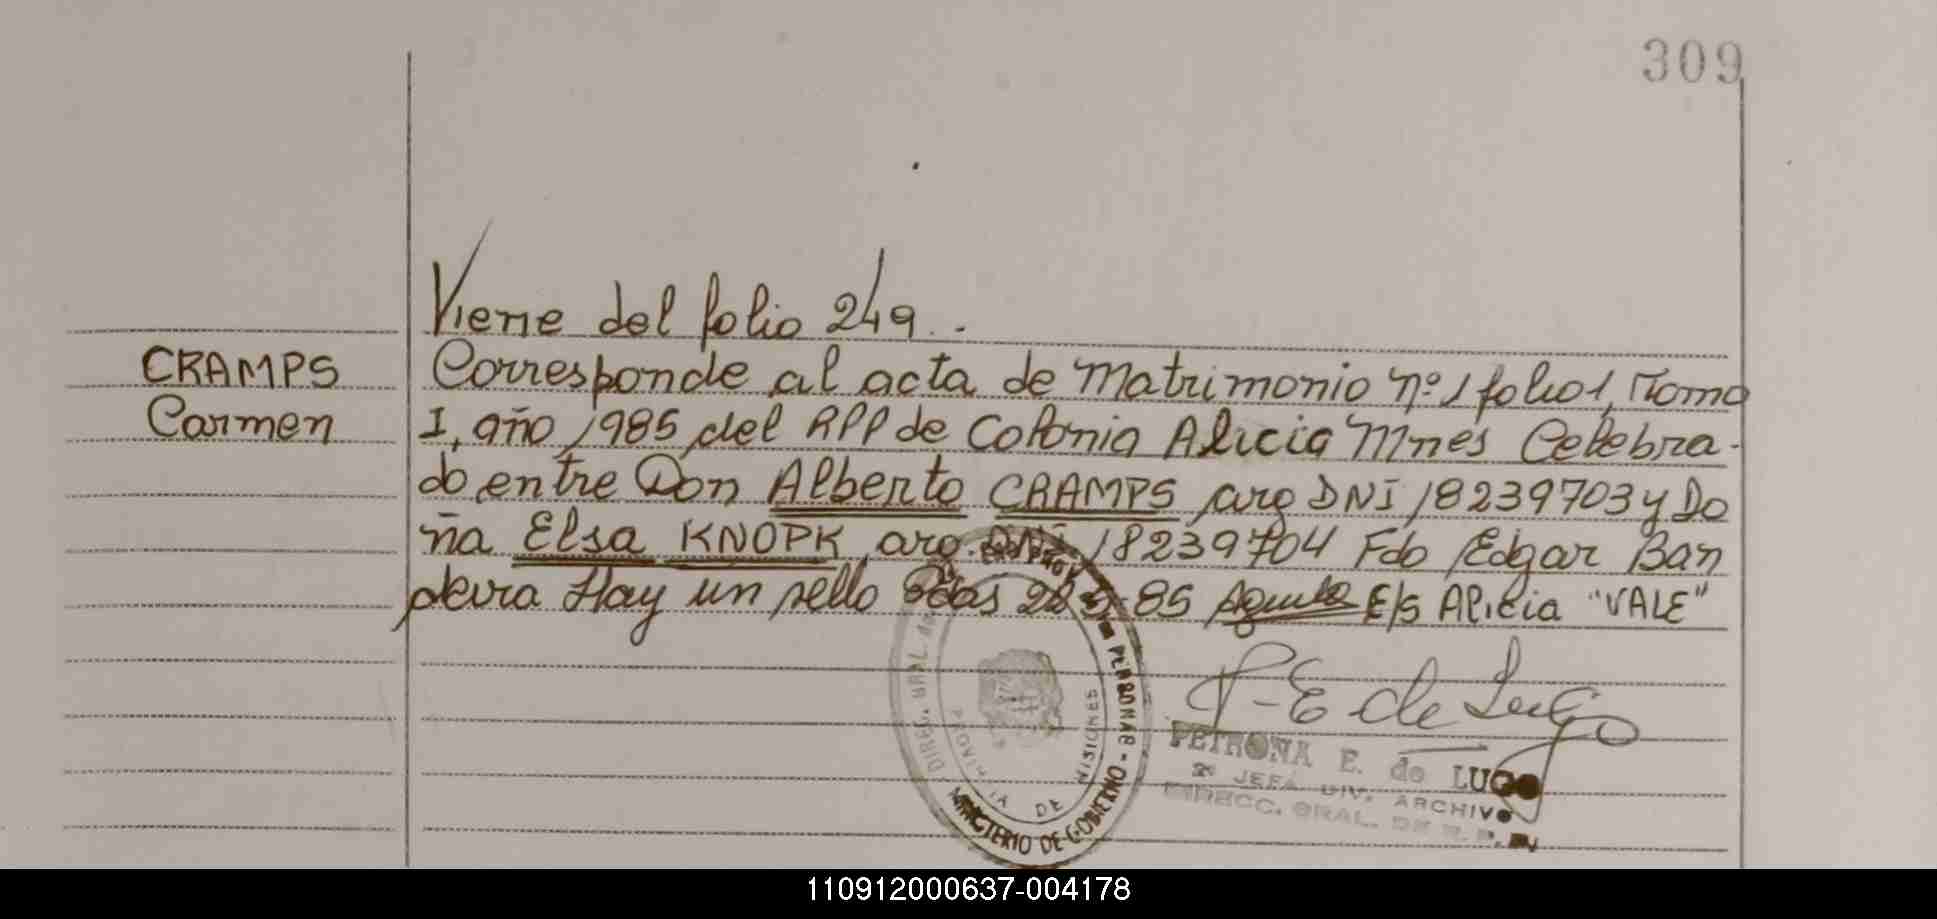 309
Viene del folio 249..
CRAMPS
Corresponde al acta de Matrimonio nº 1 folio 1, Tomo
Carmen
I, año 1985 del RPP de Colonia Alicia Mnes Celebra-
do entre Don Alberto CRAMPS arg DNI 18239703 y Do
ña Elsa KNOPK arg. DNI 18239704 Fdo Edgar Ban
deira Hay un sello Pdas 22-5-85 E/S Alicia "VALE"
P-E de Lugo
PETRONA E. de LUGO
2ª JEFA DIV. ARCHIVO
DIRECC. GRAL. DE R. P. P.
DIREC. GRAL. DE PERSONAS - MINISTERIO DE GOBIERNO
PROVINCIA DE MISIONES
110912000637-004178